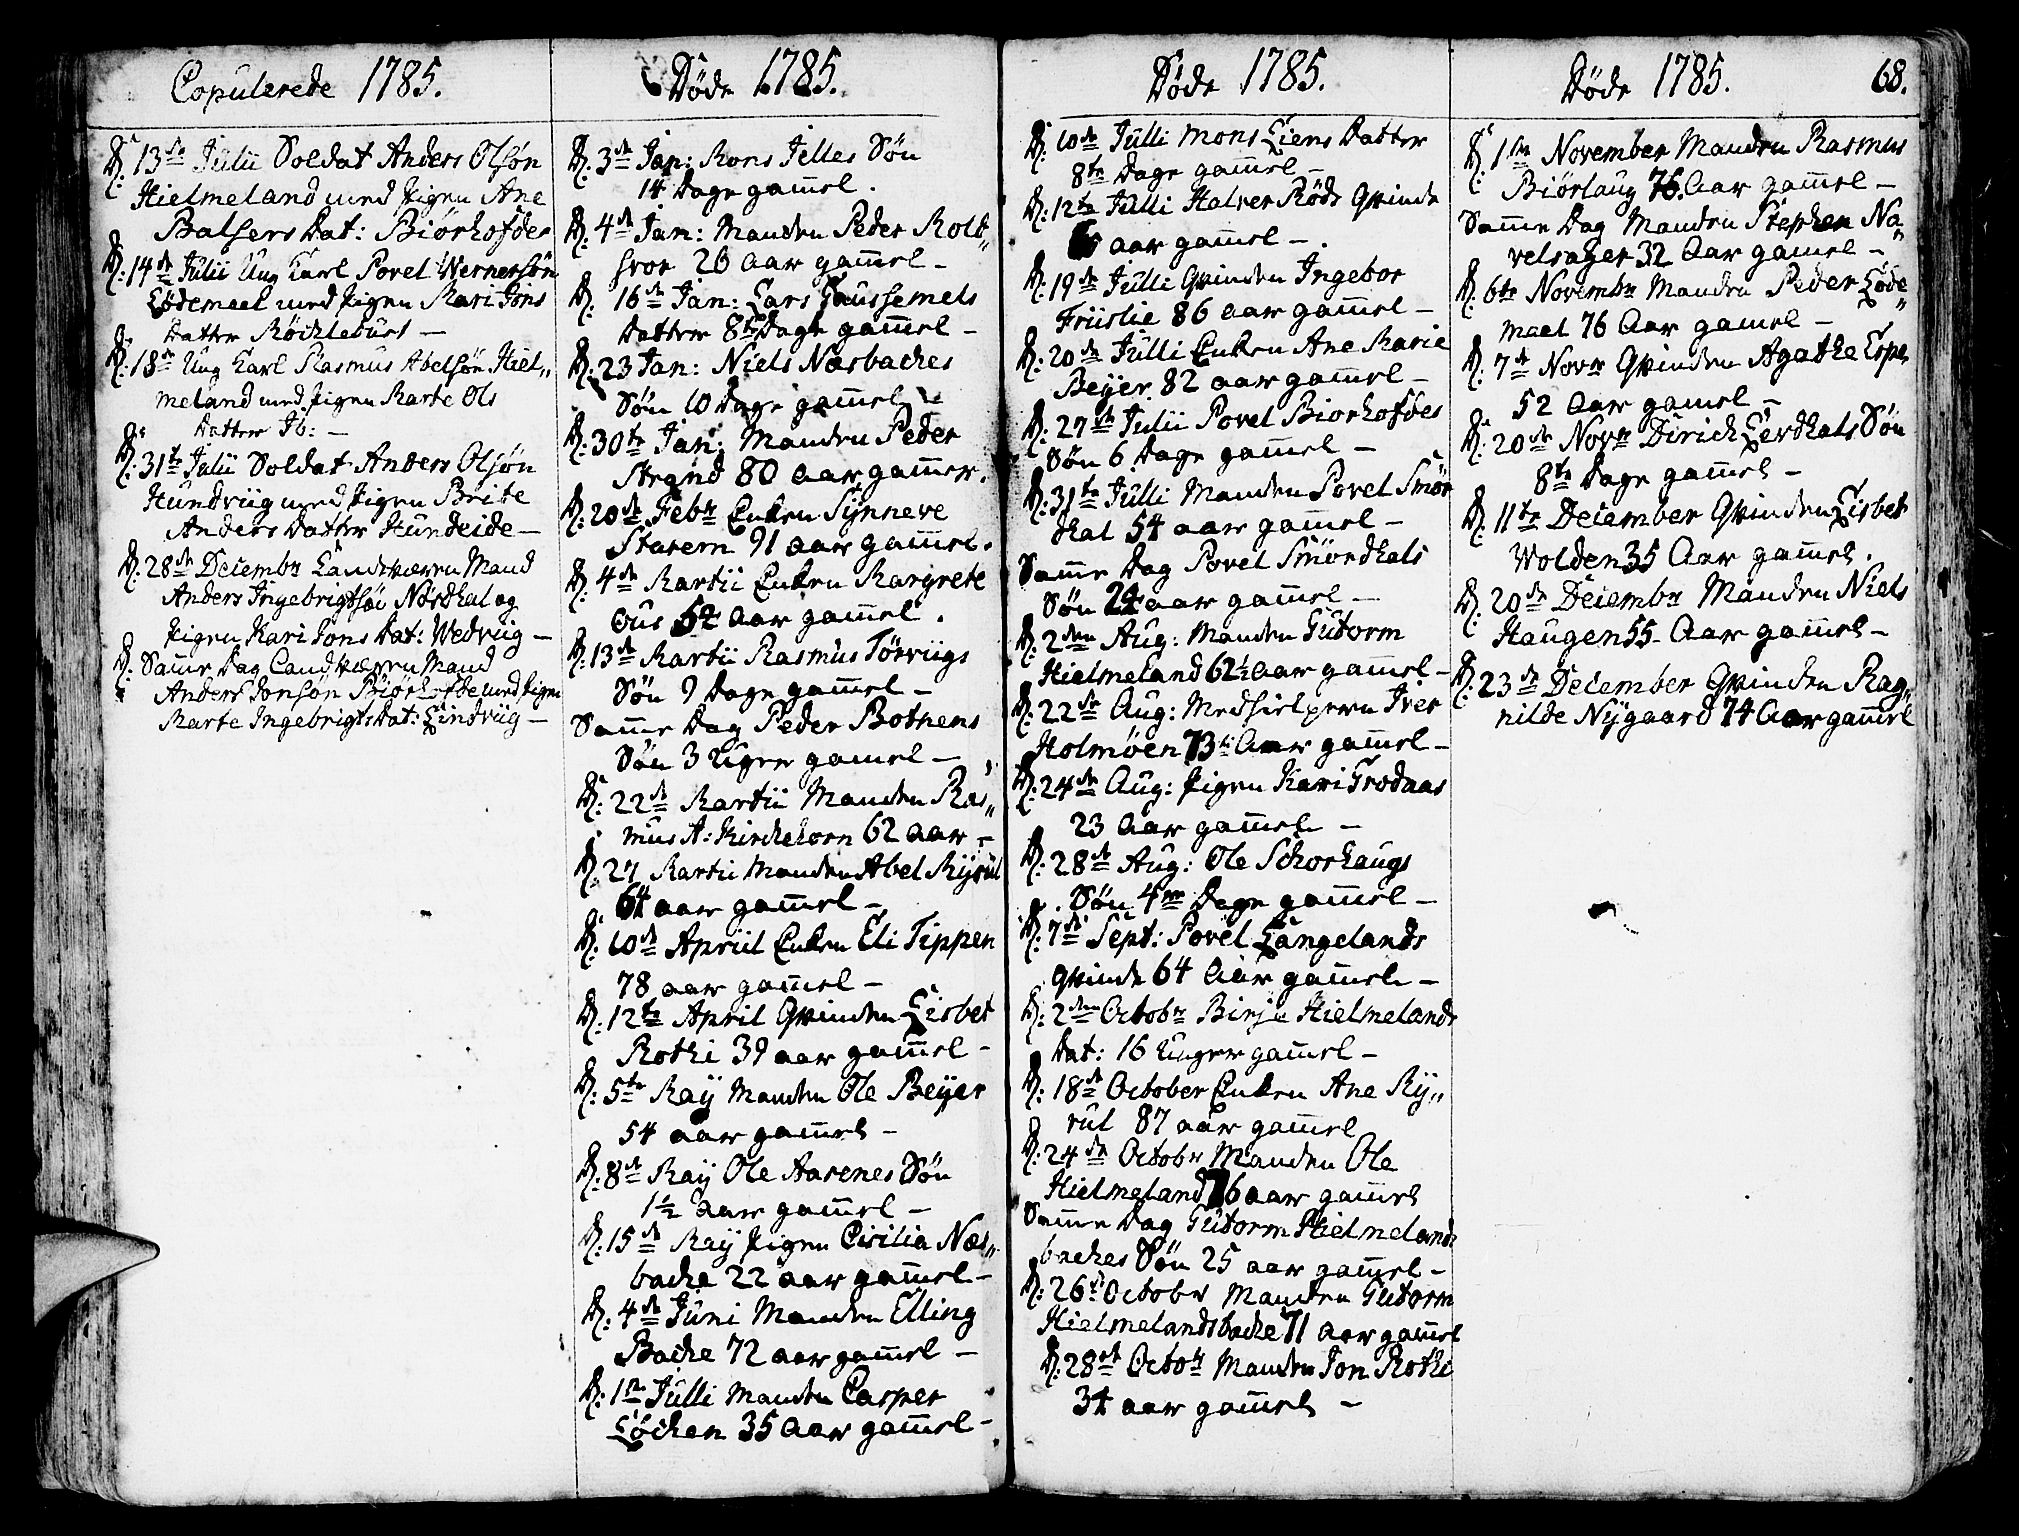 Copulerede 1785.
D: 13de Julii Soldat Anders Olsøn
Hielmeland med Pigen Ane
Balsers Dat: Biørhofde
D: 14de Julii Ung Karl Povel Wernersøn
Lødemeel med Pigen Mari Jons
Datter Røchleburst —
D: 18de Ung Karl Rasmus Abelsøn Hiel„
meland med Pigen Marte Ols
Datter Ib: —
D: 31te Julii Soldat Anders Olsøn
Hundviig med Pigen Brite
Anders Datter Hundeide —
D: 28de Decembr Landværn Mand
Anders Ingebrigtsøn Nordhal og
Pigen Kari Jons Dat: Wedviig —
D: Samme Dag Landværn Mand
Anders Jonsøn Biørhofde med Pigen
Marte Ingebrigts Dat: Lindviig —
Døde 1785.
D: 3de Jan: Mons Jelles Søn
14 Dage gammel.
D: 4de Jan: Manden Peder Molt„
hvor 26 aar gammel —
D: 16de Jan: Lars Goussemels
Datter 8te Dage gammel —
D: 23 Jan: Niels Næsbackes
Søn 10 Dage gammel
D: 30te Jan: Manden Peder
Strand 80 aar gammel.
D: 20de Febr Enken Synneve
Starem 91 aar gammel.
D: 4de Martii Enken Margrete
Ous 54 aar gammel.
D: 13de Martii Rasmus Tørviigs
Søn 9 Dage gammel —
Samme Dag Peder Bothens
Søn 3 Uger gammel —
D: 22de Martii Manden Ras„
mus A: Kirchehorn 62 aar —
D: 27 Martii Manden Abel Myrul
64 aar gammel —
D: 10de Apriil Enken Eli Tippen
78 aar gammel —
D: 12te April Qvinden Lisbet
Rothi 39 aar gammel —
D: 5te May Manden Ole Beyer
54 aar gammel —
D: 8de May Ole Aarenes Søn
1½ aar gammel —
D: 15de May Pigen Cicilia Næs„
backe 22 aar gammel —
D: 4de Juni Manden Elling
Backe 72 aar gammel —
D: 1ste Julli Manden Casper
Løcken 35 aar gammel —
Døde 1785.
D: 10de Julli Mons Liens Datter
8te Dage gammel —
D: 12te Julli Halver Røds Qvinde
aar gammel —.
D: 19de Julli Qvinden Ingebor
Friislie 86 aar gammel —
D: 20de Julli Enken Ane Marie
Beyer 82 aar gammel —
D: 27de Julii Povel Biorhofdes
Søn 6 Dage gammel —
D: 31te Julli Manden Povel Smør
dhal 54 aar gammel —
Samme Dag Povel Smørdhals
Søn 24 aar gammel —
D: 2den Aug: Manden Gutorm
Hielmeland 62½ aar gammel —
D: 22de Aug: Medhielperen Iver
Holmøen 73 Aar gammel —
D: 24de Aug: Pigen Kari Frodaas
23 Aar gammel —
D: 28de Aug: Ole Schorhaugs
Søn 4re Dage gammel —
D: 7de Sept: Povel Langelands
Qvinde 64 Aar gammel —
D: 2den Octobr Birje Hielmelands
Dat: 16 Unger gammel —
D: 18de October Enken Ane My„
rul 87 aar gammel
D: 24de Octobr Manden Ole
Hielmeland 76 aar gammel
Samme Dag Gutorm Hielmelands
backes Søn 25 aar gammel —
D: 26de Octobr Manden Gutorm
Hielmelandsbacke 71 aar gammel
D: 28de Octobr Manden Jon Rothi
34 aar gammel —
Døde 1785. 68.
D: 1ste November Manden Rasmus
Biørlaug 76 Aar gammel —
Samme Dag Manden Stephen Na„
velsager 32 Aar gammel —
D: 6te Novembr Manden Peder Løde„
mael 76 Aar gamel —
D: 7de Novr Qvinden Agathe Espe
52 aar gamel —
D: 20de Novr Dirich Lerdhals Søn
8te Dage gammel —
D: 11te December Qvinden Lisbet
Wolden 35 Aar gammel.
D: 20de Decembr Manden Niels
Haugen 55 Aar gammel —
D: 23de December Qvinden Rag„
nilde Nygaard 74 Aar gammel